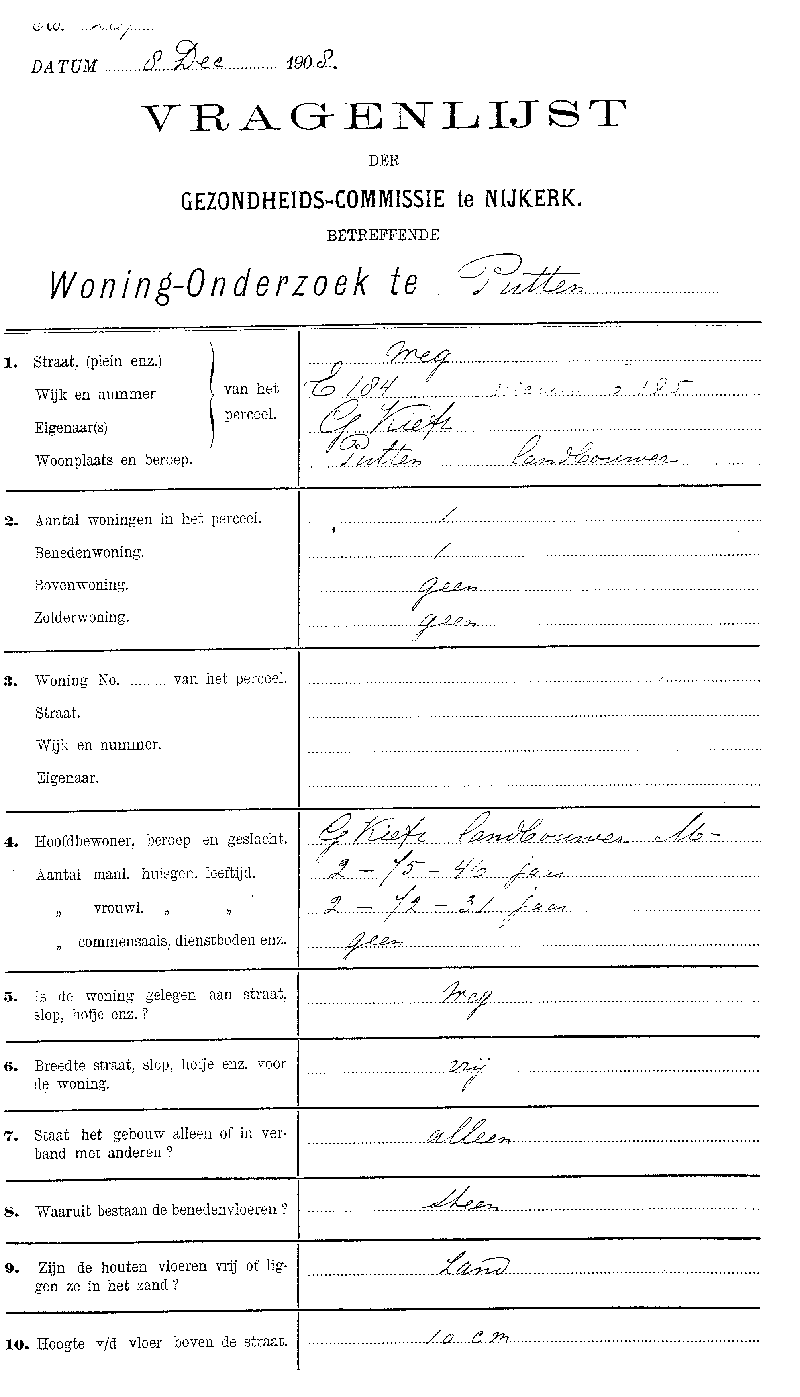 DATUM 8 Dec 1908.
VRAGENLIJST
DER
GEZONDHEIDS-COMMISSIE te NIJKERK.
BETREFFENDE
Woning-Onderzoek te Putten
1. Straat, (plein enz.) weg
Wijk en nummer van het perceel. E 184 185
Eigenaar(s) G Kieft
Woonplaats en beroep. Putten landbouwer
2. Aantal woningen in het perceel. 1
Benedenwoning. 1
Bovenwoning. geen
Zolderwoning. geen
3. Woning No. ........ van het perceel.
Straat.
Wijk en nummer.
Eigenaar.
4. Hoofdbewoner, beroep en geslacht. G Kieft landbouwer M-
Aantal manl. huisgen. leeftijd. 2 - 75 - 46 jaar
„ vrouwl. „ „ 2 - 72 - 31 jaar
„ commensaals, dienstboden enz. geen
5. Is de woning gelegen aan straat, weg
slop, hofje enz.?
6. Breedte straat, slop, hofje enz. voor vrij
de woning.
7. Staat het gebouw alleen of in ver- alleen
band met anderen?
8. Waaruit bestaan de benedenvloeren? steen
9. Zijn de houten vloeren vrij of lig- zand
gen ze in het zand?
10. Hoogte v/d vloer boven de straat. 10 cm